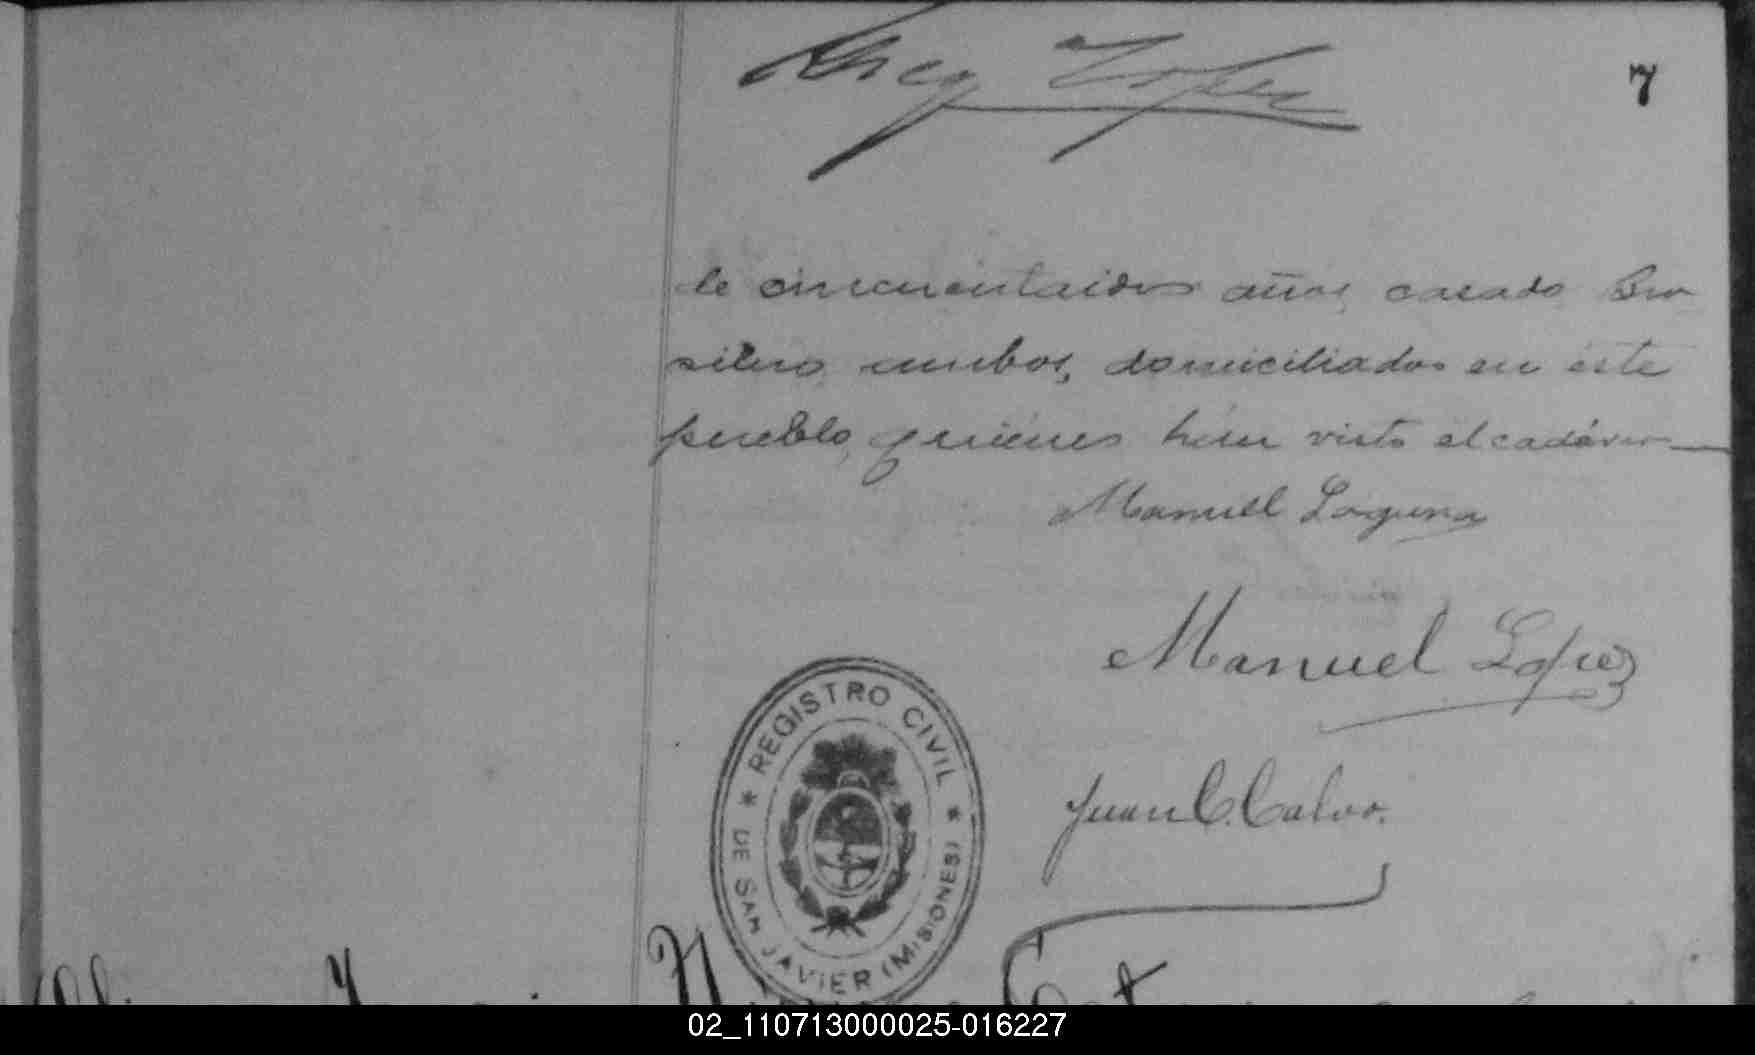 7
Lopez
de cincuentaidos años, casado Bra
silero, ambos, domiciliados en éste
pueblo, quiénes hán visto el cadáver
Manuel Laguna
Manuel Lopez
Juan C. Calvo.
* REGISTRO CIVIL *
DE SAN JAVIER (MISIONES)
02_110713000025-016227